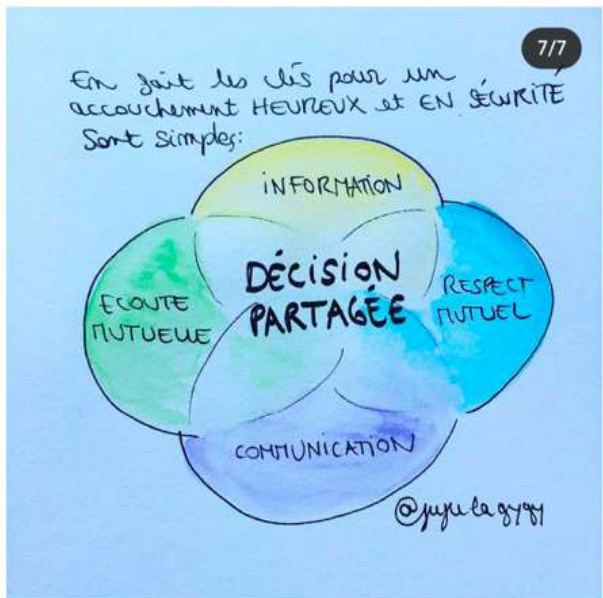 7/7
En fait les clés pour un
accouchement HEUREUX et EN SÉCURITÉ
Sont simples:
INFORMATION
DÉCISION
PARTAGÉE
ECOUTE
MUTUELLE
RESPECT
MUTUEL
COMMUNICATION
@jujulagygy